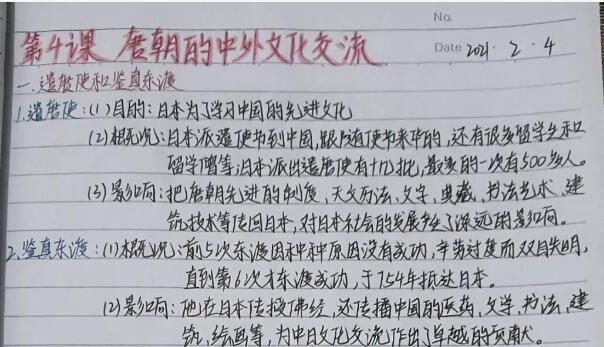 No.
第4课 唐朝的中外文化交流
Date 2021. 2. 4
一.遣唐使和鉴真东渡
1.遣唐使:(1)目的:日本为了学习中国的先进文化
(2)概况:日本派遣使节到中国,跟随使节来华的,还有很多留学生和
留学僧等;日本派出遣唐使有十几批,最多的一次有500多人。
(3)影响:把唐朝先进的制度、天文历法、文字、典藏、书法艺术、建
筑技术等传回日本,对日本社会的发展产生了深远的影响。
2.鉴真东渡:(1)概况:前5次东渡因种种原因没有成功,辛劳过度而双目失明,
直到第6次才东渡成功,于754年抵达日本。
(2)影响:他在日本传授佛经,还传播中国的医药、文学、书法、建
筑、绘画等,为中日文化交流作出了卓越的贡献。